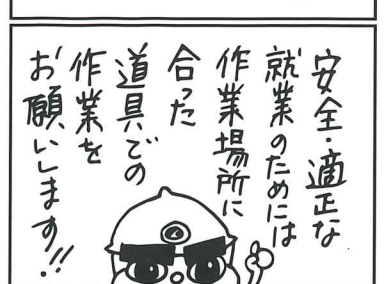 安全・適正な
就業のためには
作業場所に
合った
道具での
作業を
お願いします!!